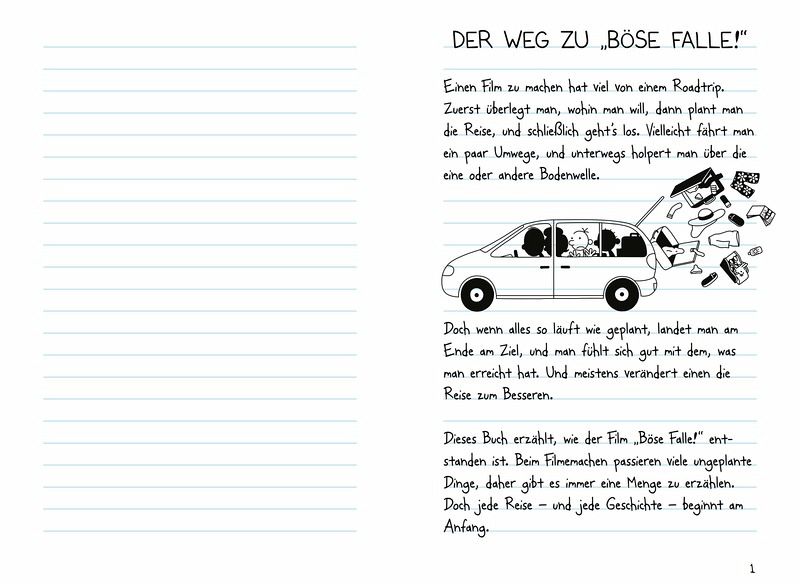 DER WEG ZU „BÖSE FALLE!“
Einen Film zu machen hat viel von einem Roadtrip.
Zuerst überlegt man, wohin man will, dann plant man
die Reise, und schließlich geht's los. Vielleicht fährt man
ein paar Umwege, und unterwegs holpert man über die
eine oder andere Bodenwelle.
Doch wenn alles so läuft wie geplant, landet man am
Ende am Ziel, und man fühlt sich gut mit dem, was
man erreicht hat. Und meistens verändert einen die
Reise zum Besseren.
Dieses Buch erzählt, wie der Film „Böse Falle!“ ent-
standen ist. Beim Filmemachen passieren viele ungeplante
Dinge, daher gibt es immer eine Menge zu erzählen.
Doch jede Reise – und jede Geschichte – beginnt am
Anfang.
1